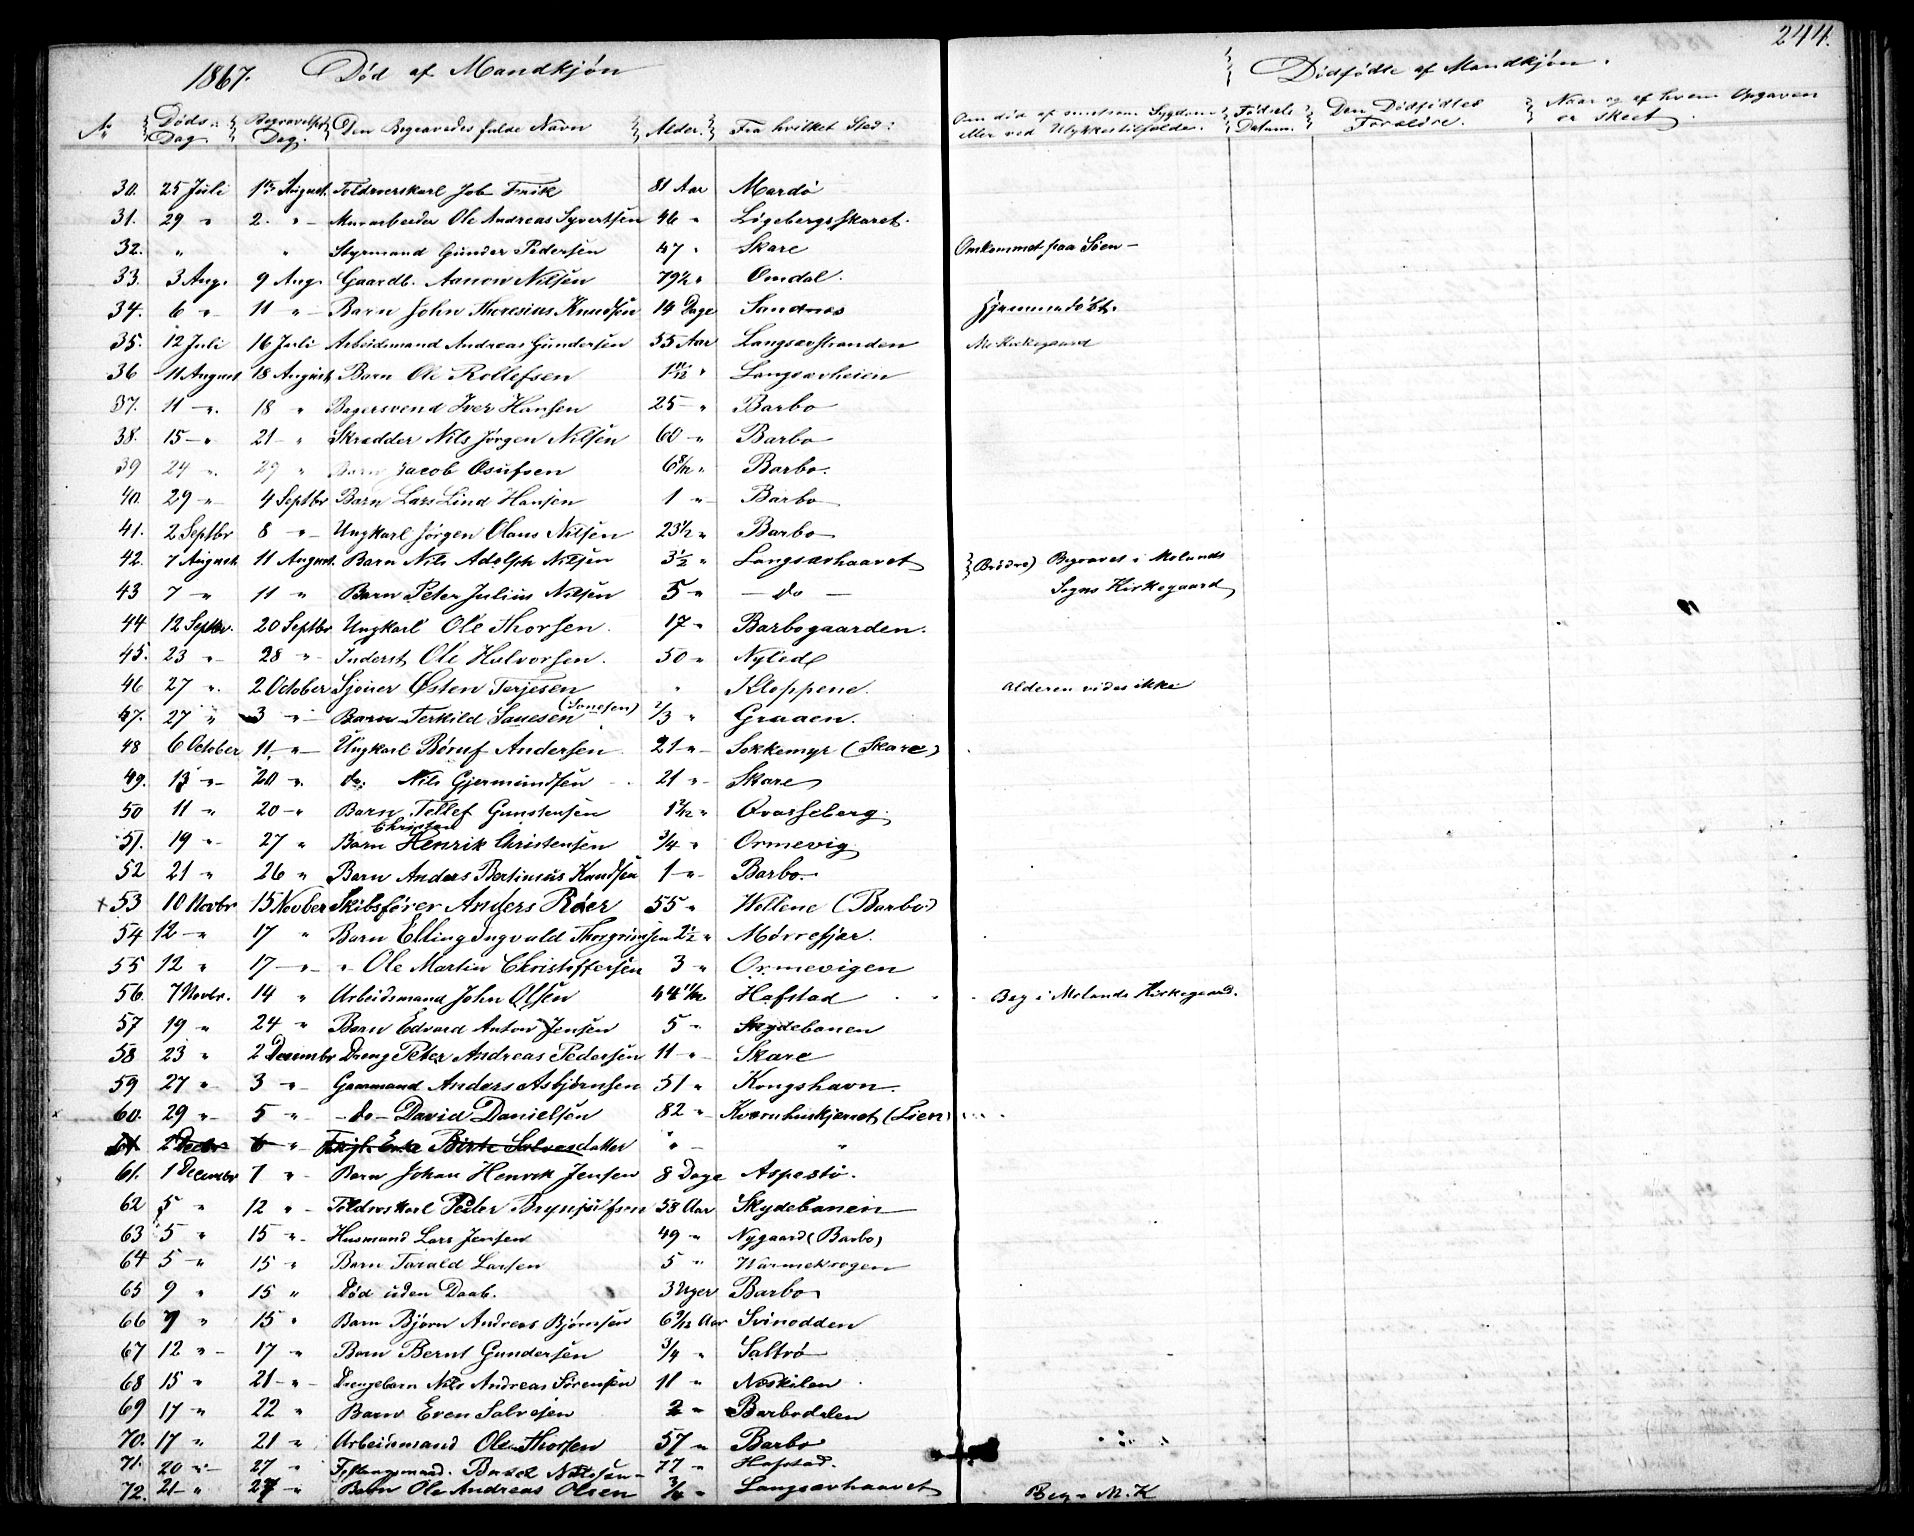 244.
1867. Død af Mandkjøn
Dødfødte af Mandkjøn.
No Døds- Dag Begravelses Dag. Den Begravedes fulde Navn Alder. Fra hvilket Sted. Om død af smitsom Sygdom eller ved Ulykkestilfælde. Fødsels Datum. Den Dødfødtes Forældre. Naar og af hvem Opgaven er skeet
30. 25 Juli 1ste August. Toldroerskarl Job 81 Aar Mardö
31. 29 " 2. " Murarbeider Ole Andreas Syvertsen 46 " Lögebergsskaret.
32. " " Styrmand Gunder Pedersen 47 " Skare Omkommet paa Söen
33. 3 Aug. 9 Aug. Gaardb. Aanon Nilsen 79½ " Omdal.
34. 6 " 11 " Barn John Thoresius Knudsen 14 Dage Sandnes Hjemmedöbt.
35. 12 Juli 16 Juli Arbeidsmand Andreas Gundersen 55 Aar Langsævstranden M. Kirkegaard
36 11 August 18 August Barn Ole Rollefsen 1 11/12 " Langsævheien
37. 11 " 18 " Bagersvend Iver Hansen 25 " Barbo
38. 15 " 21 " Skrædder Nils Jörgen Nilsen 60 " Barbo
39 24 " 29 " Barn Jacob Osufsen 6 8/12 " Barbo.
40. 29 " 4 Septbr Barn Lars Lind Hansen 1 " Barbo
41. 2 Septbr 8 " Ungkarl Jörgen Olaus Nilsen 23½ " Barbo
42. 7 August 11 August. Barn Nils Adolph Nilsen 3½ " Langsævhaavet (Brödre) Begravet i Molands
43 7 " 11 " Barn Peter Julius Nilsen 5 " – do – Sogns Kirkegaard
44 12 Septbr. 20 Septbr Ungkarl Ole Thorsen. 17 " Barbogaarden.
45. 23 " 28 " Inderst Ole Halvorsen. 50 " Nyled
46 27 " 2 October Sjouer Østen Terjesen " Kloppene. Alderen vides ikke
47. 27 " 3 " Barn Terkild (Tonesen) 2/3 " Graaen.
48 6 October 11 " Ungkarl Andersen 21 " Sokkemyr (Skare)
49. 13 " 20 " do: Nils Gjermundsen 21 " Skare
50 11 " 20 " Barn Tellef Gunstensen 1 2/12 " Qvasseberg.
51. 19 " 27 " Barn Christen Henrik Christensen 3/4 " Ormevig
52 21 " 26 " Barn Anders Bertinius Knudsen 1 " Barbo.
+ 53 10 Novbr 15 Novber Skibsfører Anders Röer 55 " Wollene (Barbo.)
54 12 " 17 " Barn Elling Ingvald Thorgrimsen 2½ " Mørrefjær.
55 12 " 17 " " Ole Martin Christoffersen 3 " Ormevigen
56. 7 Novbr. 14 " Arbeidsmand John Olsen 44 11/12 Hafstad Beg i Molands Kirkegaard.
57 19 " 24 " Barn Edvard Anton Jensen 5 " Skydebanen
58 23 " 2 Decembr Dreng Peter Andreas Pedersen 11 " Skare
59 27 " 3 " Gaarmand Anders Asbjørnsen 51 " Kongshavn.
60. 29 " 5 " – do – David Danielsen 82 " Kvernhuskjenet (Lien)
61 2 Decbr 6 " Enke Birte Salvesdatter " "
61. 1 Decembr 7 " Barn Johan Henrik Jensen 8 Dage Aspestö.
62 5 " 12 " Toldroerskarl Peder Brynjulfsen 58 Aar Skydebanen
63 5 " 15 " Husmand Lars Jensen 49 " Nygaard (Barbo)
64 5 " 15 " Barn Tarald Larsen 5 " Warmekrogen
65 9 " 15 " Død uden Daab. 3 Uger Barbo
66 7 " 15 " Barn Bjørn Andreas Bjørnsen 6 9/12 Aar Svinodden
67 12 " 17 " Barn Bernt Gundersen 3/4 " Saltrö
68 15 " 21 " Drengebarn Nils Andreas Sörensen 11 " Neskilen
69 17 " 22 " Barn Even Salvesen 2 " Barbodalen
70. 17 " 21 " Arbeidsmand Ole Thorsen 57 " Barbo
71. 20 " 27 " Nilssen 77 " Hafstad.
72. 21 " 27 " Barn Ole Andreas Olsen 3/4 " Langsævhaavet Beg. M. K